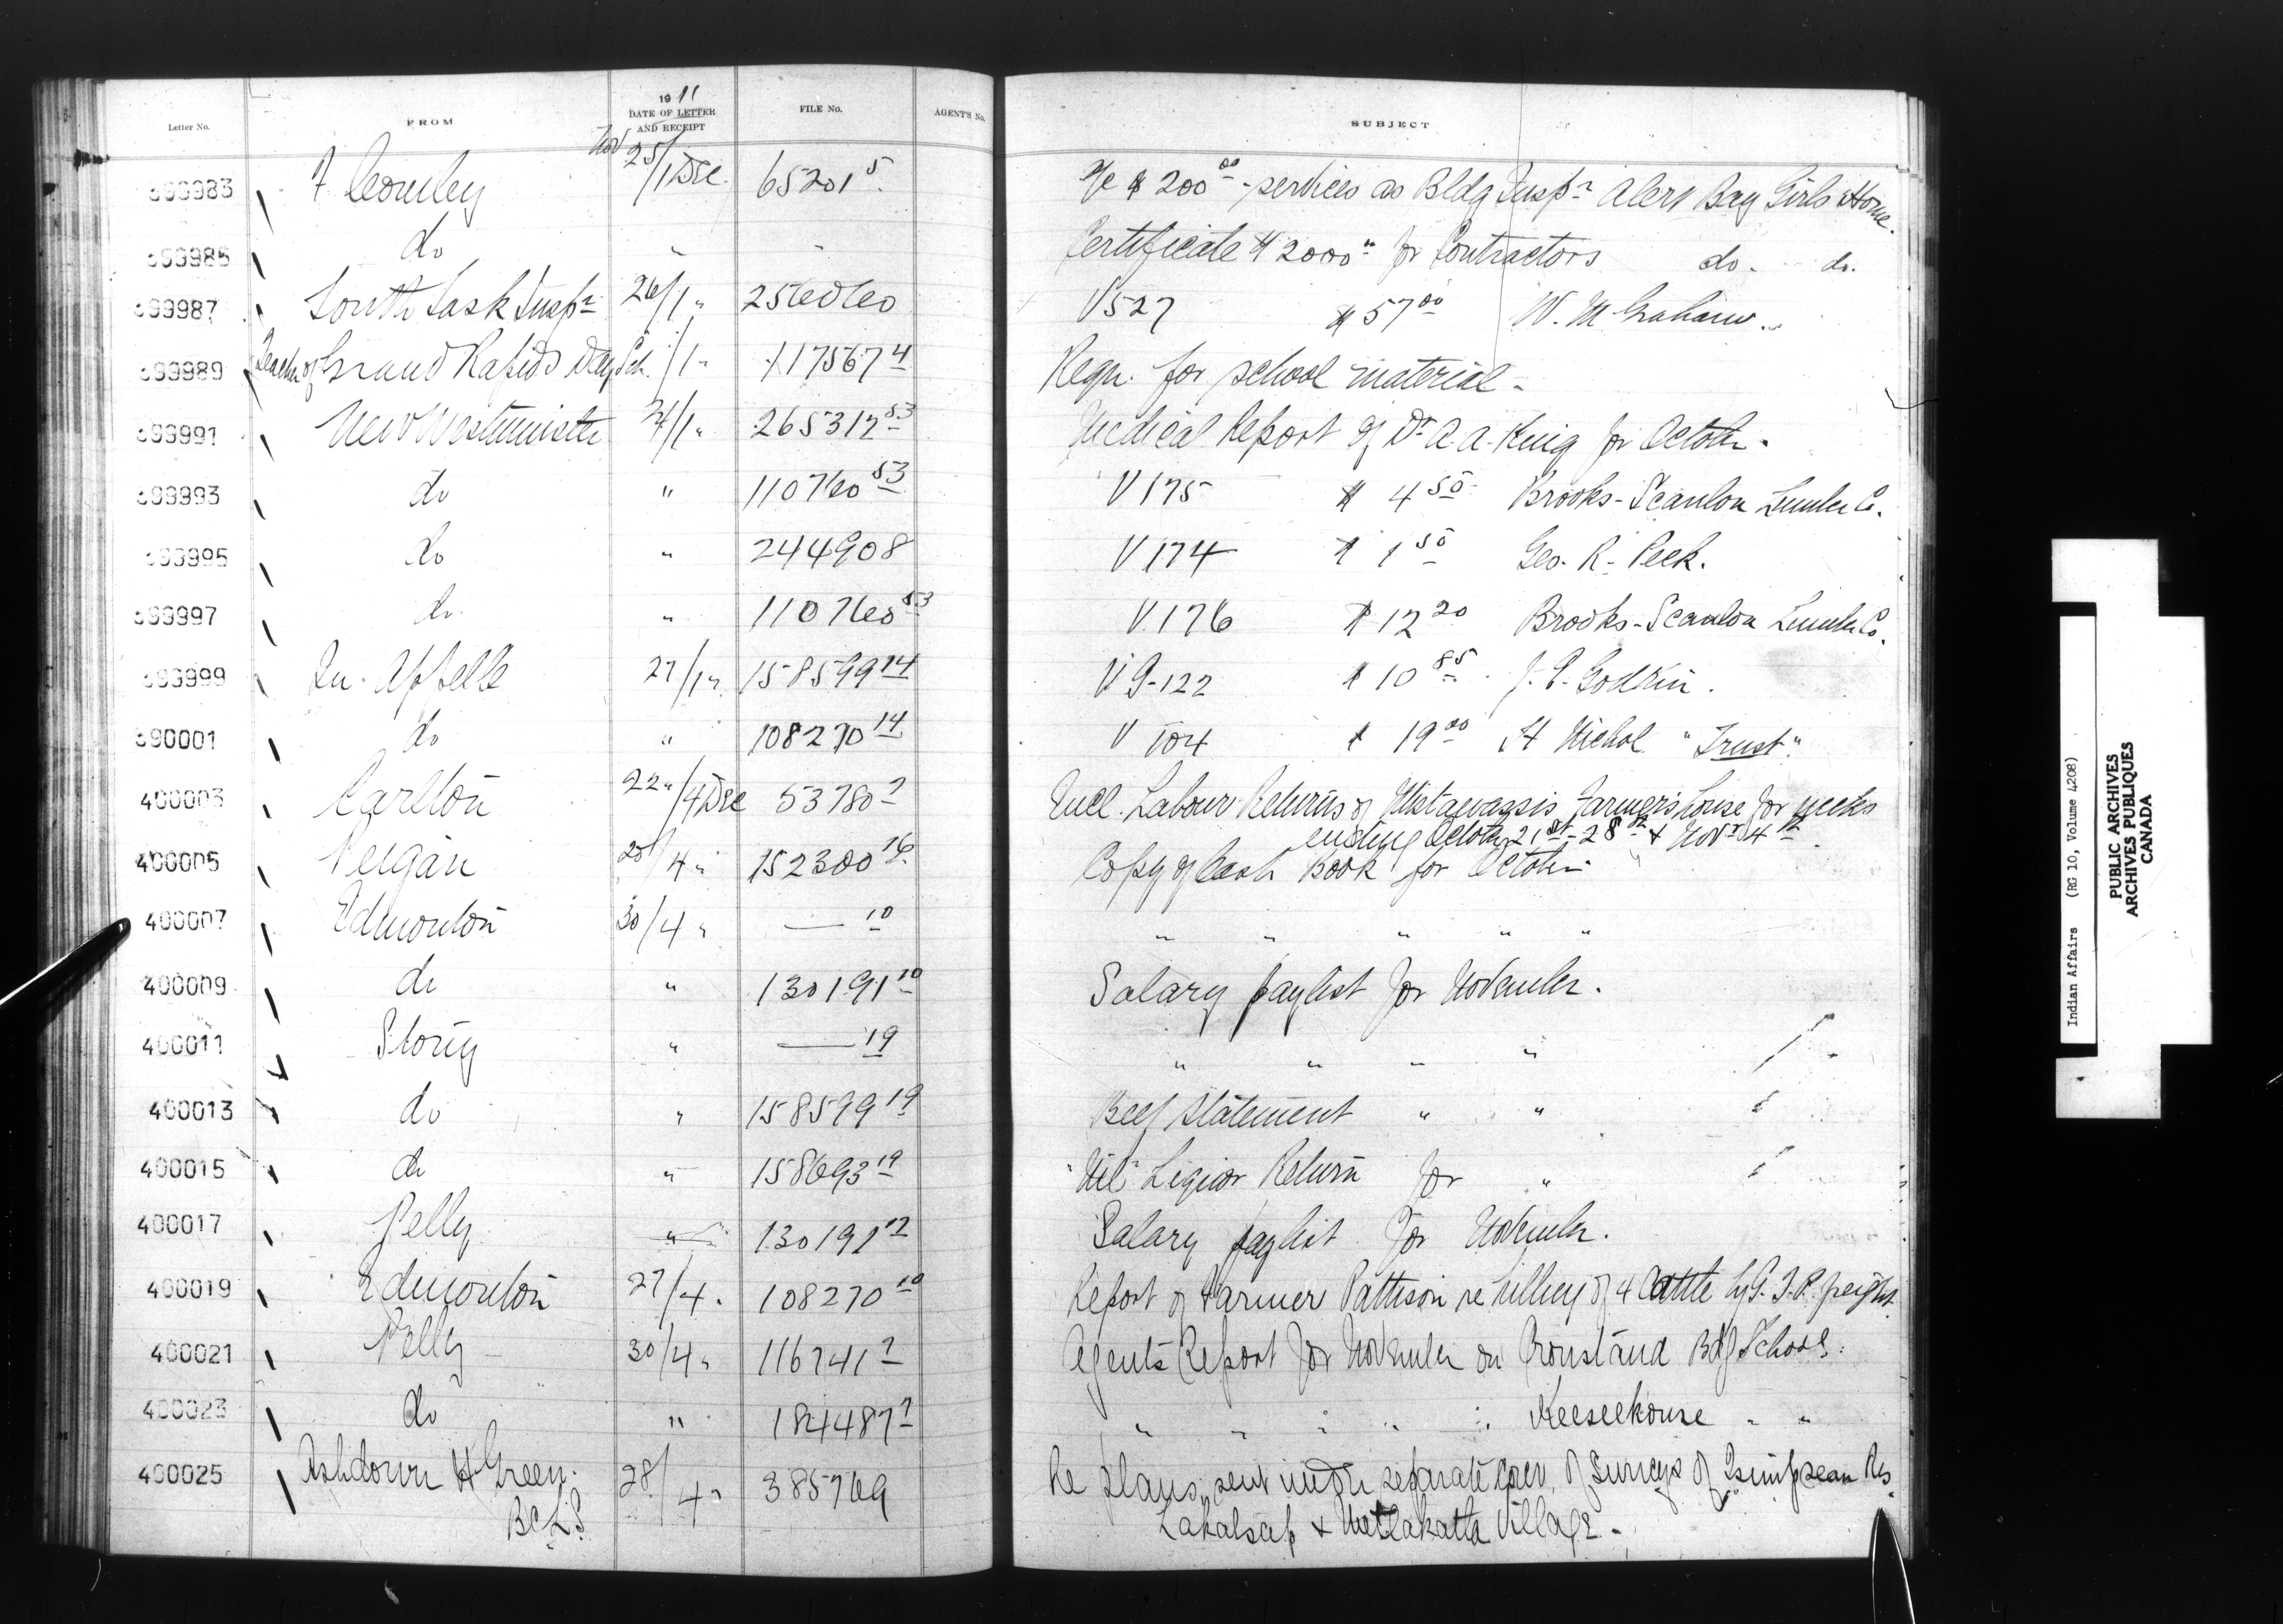 Letter No. FROM 1911 DATE OF LETTER AND RECEIPT FILE No. AGENT'S No. SUBJECT
399983 F Cowley Nov 25/1 Dec. 65201 5 a/c $200 00 - services as Bldg Insp r Alert Bay Girls Home.
399985 do " " Certificate $2000 " for Contractors do. do.
399987 South Sask Insp r 26/1 " 256060 V527 $57 00 W. M. Graham.
399989 Teacher of Grand Rapids Day Sch. /1 " 117567 4 Reqn. for school material -
399991 New Westminster 24/1 " 265317 53 Medical Report of Dr A. A. King for October.
399993 do " 110760 53 V 175 $ 4 50 Brooks-Scanlon Lumber Co.
399995 do " 244908 V 174 $ 1 50 Geo. R. Peek.
399997 do " 110760 53 V. 176 $ 12 20 Brooks-Scanlon Lumber Co.
399999 Qu. Appelle 27/1 " 158599 14 V G-122 $ 10 85 J. P. Godkin.
390001 do " 108270 14 V 104 $ 19 00 H Nichol "Trust"
400003 Carlton 22 "/4 Dec 53780 7 Encl. Labour Returns of Mistawassis Farmer's house for weeks
ending October 21st - 28th & Nov r 4th.
400005 Peigan 28/4 " 152300 16 Copy of Cash Book for October
400007 Edmonton 30/4 " — 10 " " " " "
400009 do " 130191 10 Salary paylist for November.
400011 Stony " — 19 " " " "
400013 do " 158599 19 Beef Statement " "
400015 do " 158693 19 "Nil" Liquor Return for "
400017 Pelly " 130191 12 Salary paylist for November.
400019 Edmonton 27/4 . 108270 10 Report of Farmer Pattison re killing of 4 Cattle by G. T. P. freight.
400021 Pelly 30/4 " 116741 7 Agents Report for November on Crowstand Bdg School.
400023 do " 184487 7 " " " " " Keeseekouse " "
400025 Ashdown H Green. 28/4 " 385769 Re plans, sent under separate cover, of surveys of Tsimpsean Res.
B C L S Lakalsap & Metlakatla Village.
Indian Affairs (RG 10, Volume 4208)
PUBLIC ARCHIVES
ARCHIVES PUBLIQUES
CANADA